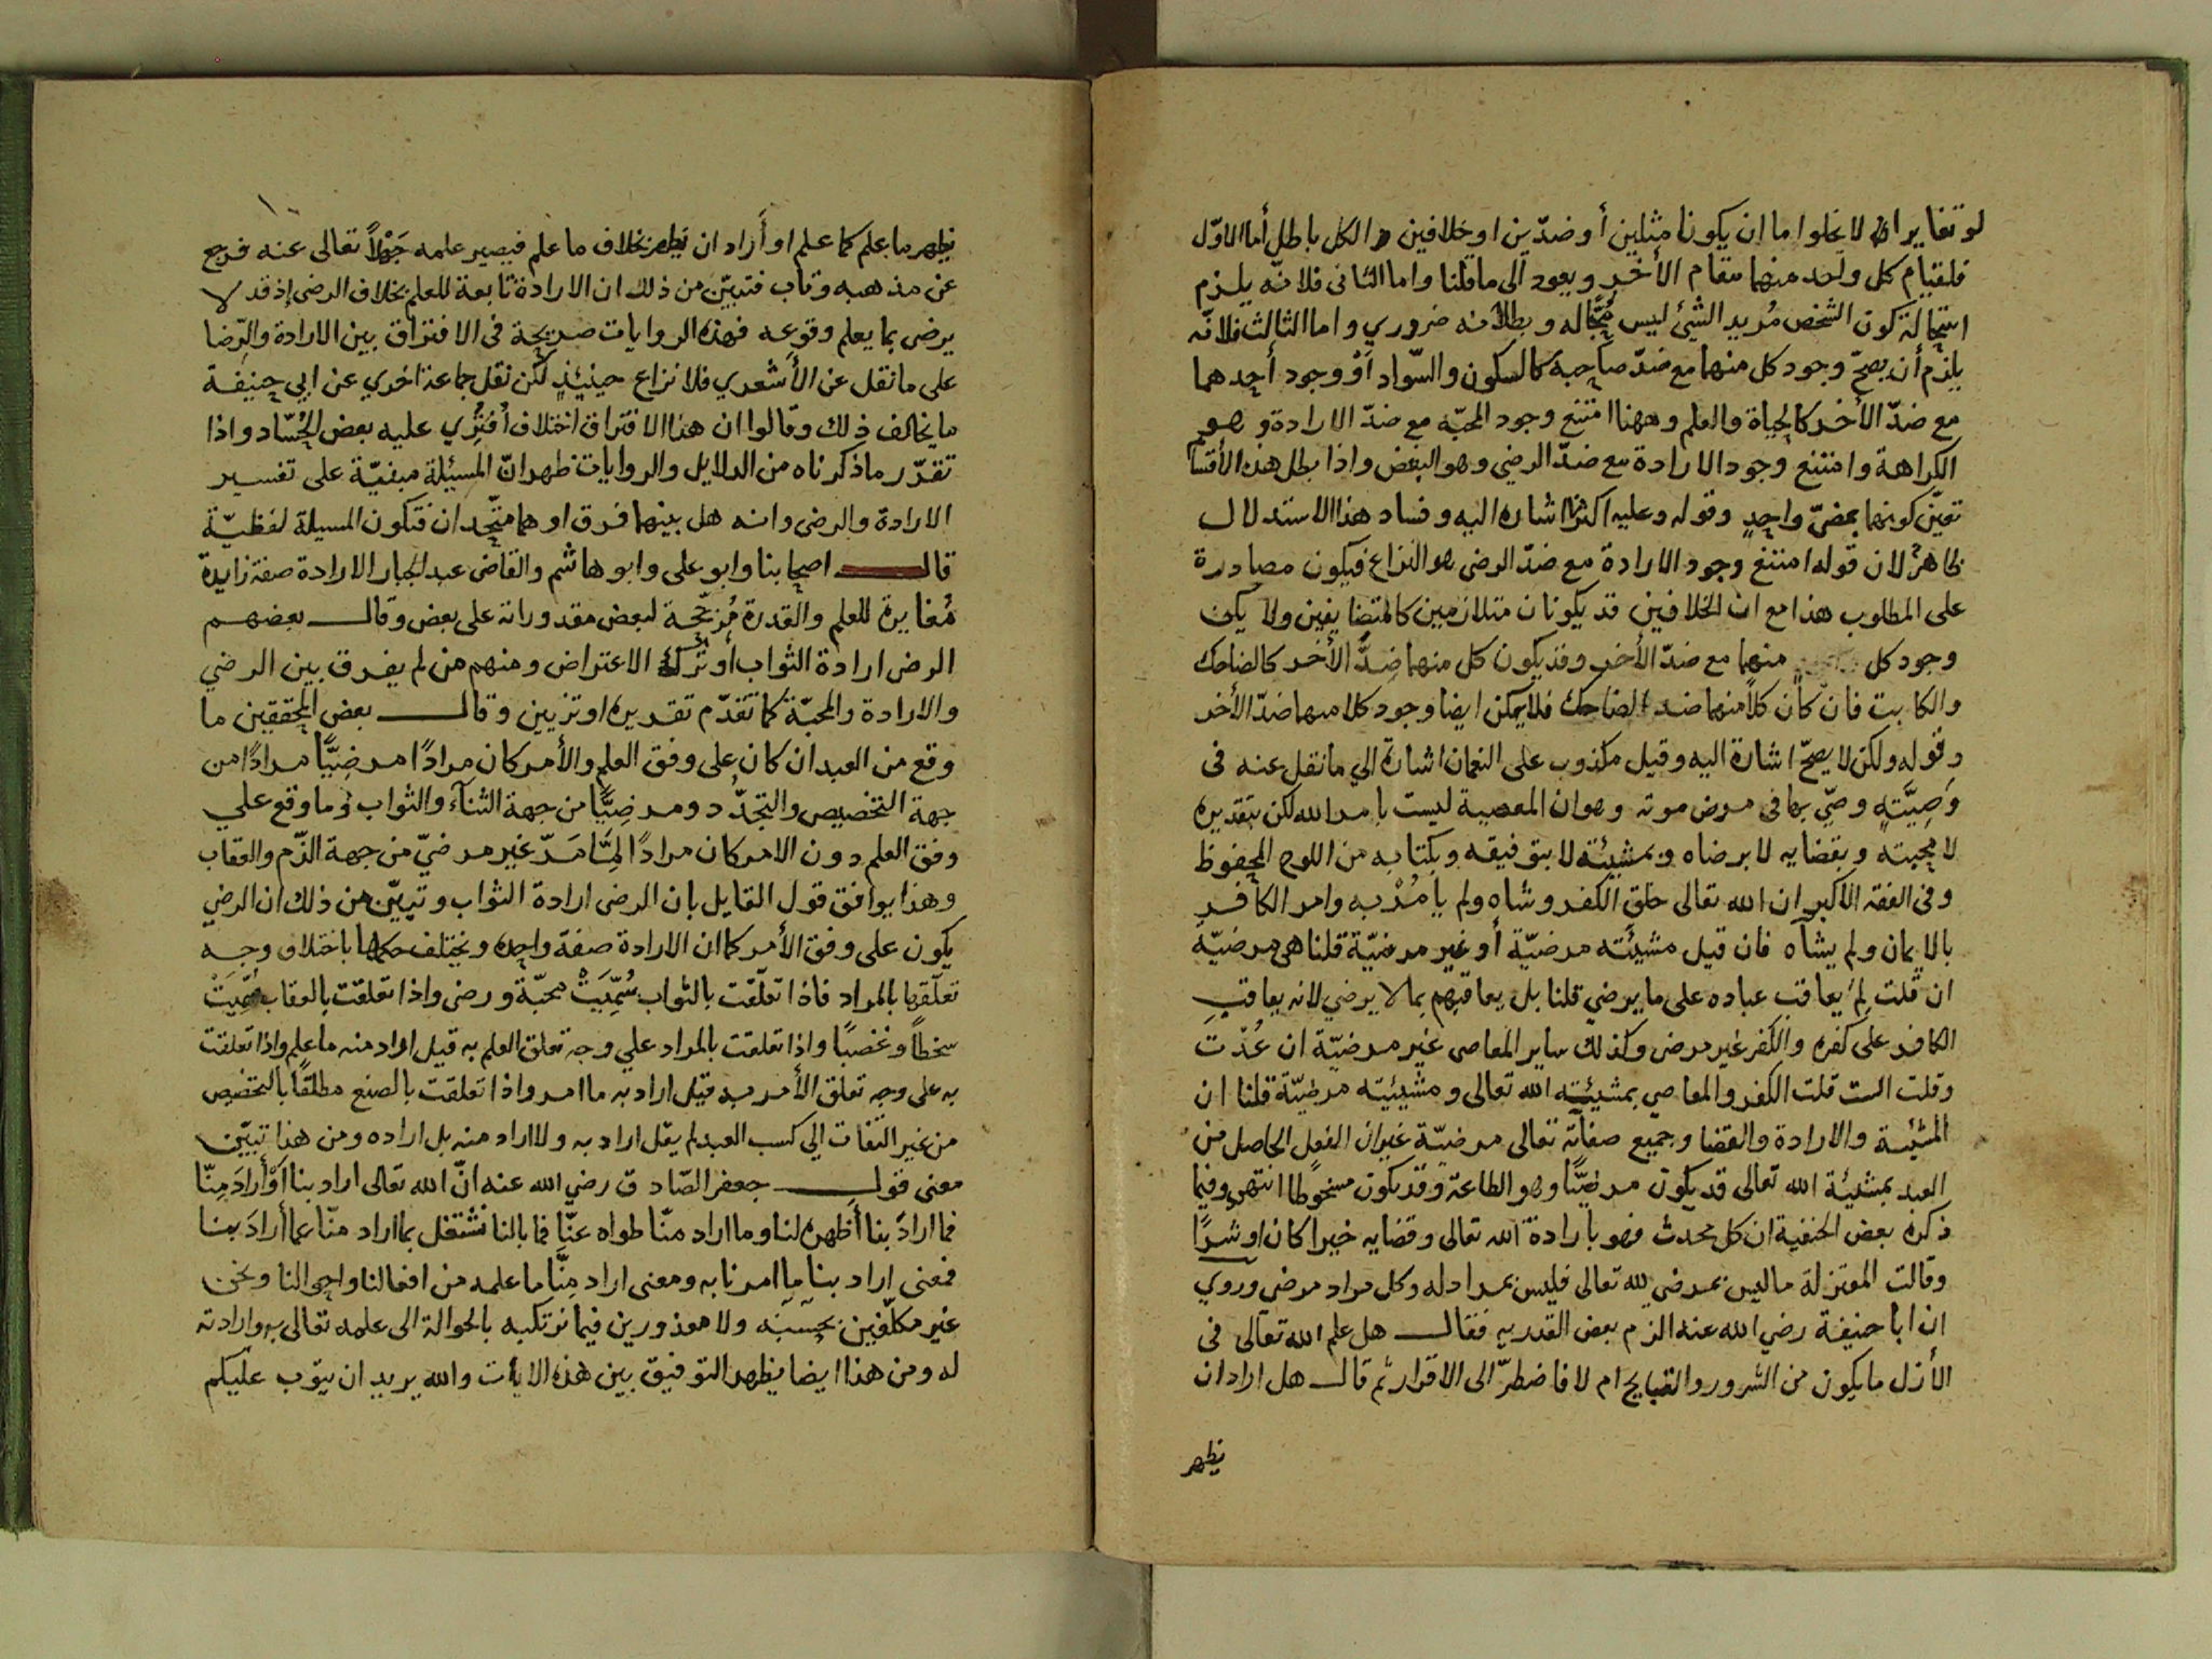 لو تغايرا لا يخلوا ما ان يكونا مثلين أو ضدّين او خلافين والكل باطل أما الاوّل
فلقيام كل واحد منهما مقام الأخر ويعود الى ما قلنا واما الثانى فلانّه يلزم
استحالة كون الشخص مُريد الشئ ليس مُحبًّا له وبطلانه ضروري واما الثالث فلانّه
يلزم أن يصحّ وجود كل منهما مع ضدّ صاحبه كالسكون والسّواد أوْ وجود أحدهما
مع ضدّ الأخر كالحياة والعلم وههنا امتنع وجود المحبّه مع ضدّ الارادة وهو
الكراهة وامتنع وجود الارادة مع ضدّ الرضى وهو البغض واذا بطل هذه الأقسا
تعيّن كونهما بمعنىً واحدٍ وقوله وعليه اكثرنا اشاره اليه وفساد هذا الاستدلال
ظاهرٌ لان قوله امتنع وجود الارادة مع ضدّ الرضى هو النزاع فيكون مصادرة
على المطلوب هذا مع ان الخلافين قد يكونان متلازمين كالمتضايفين ولا يكن
وجود كل منهما مع ضدّ الأخر وقد يكون كل منهما ضدًّ الأخر كالضاحك
والكاتب فان كان كلاًّ منهما ضد الضاحك فلا يمكن ايضا وجود كلا منهما ضدّ الأخر
وقوله ولكن لا يصحّ اشارة اليه وقيل مكذوب على النعمان اشارة الي ما نقل عنه فى
وَصِيَّتهِ وصّي بها فى مرض موته وهو ان المعصية ليست بامر الله لكن بتقديره
لا محبته وبقضايه لا برضاه وبمشيئته لا بتوفيقه وبكتابه من اللوح المحفوظ
وفى الفقه الأكبر ان الله تعالى خلق الكفر وشاه ولم يأمُرْ به وامر الكافر
بالايمان ولم يشآه فان قيل مشيئته مرضيّة أو غير مرضيّة قلنا هى مرضيّة
ان قلت لِمَ يعاقب عباده على ما يرضي قلنا بل يعاقبهم بما لا يرضي لانه يعاقب
الكافر على كفره والكفر غير مرضى وكذلك ساير المعاصى غير مرضيّة ان عُدّت
وقلت الست قلت الكفر والمعاصي بمشيئته الله تعالى ومشيئيته مرضيّة قلنا ان
المشيّة والارادة والقضا وجميع صفاته تعالى مرضيّة غير ان الفعل الحاصل من
العبد بمشيئة الله تعالى قد يكون مرضيًّا وهو الطاعة وقد يكون مسخوطا انتهى وفيما
ذكره بعض الحنفية ان كل محدث فهو بارادة الله تعالى وقضايه خيرا كان او شرًا
وقالت المعتزلة ما ليس بمرضي لله تعالى فليس بمراد له وكل مراد مرضى وروي
ان ابا حنيفة رضي الله عنه الزم بعض القدريه فقال هل علم الله تعالى فى
الأزل ما يكون من الشرور والقبايح ام لا فاضطرّ الى الاقرار ثم قال هل اراد ان
يظهر
يظهر ما علم كما علم او أراد ان يظهر بخلاف ما علم فيصير علمه جَهْلاً تعالى عنه فرجع
عن مذهبه وتاب فتبيّن من ذلك ان الارادة تابعة للعلم بخلاف الرضى إذ قد لا
يرضى بما يعلم وقوعه فهذه الروايات صريحة فى الافتراق بين الارادة والرّضا
على ما نقل عن الأشعري فلا نزاع حينئذٍ لكن نقل جماعة اخري عن ابي حنيفة
ما يخالف ذلك وقالوا ان هذا الافتراق اختلاف أُفتُرِي عليه بعض الحُسّاد واذا
تقرّر ما ذكرناه من الدلايل والروايات ظهر انّ المسئلة مبنيّة على تفسير
الارادة والرضى وانه هل بينهما فرق او هما متّحدان فتكون المسيلة لفظيّة
قال اصحابنا وابو على وابو هاشم والقاضى عبد الجبار الارادة صفة زايدة
مُغايرة للعلم والقدرة مُرجّحة لبعض مقدوراته على بعض وقال بعضهم
الرضى ارادة الثواب أو ترك الاعتراض ومنهم من لم يفرق بين الرضي
والارادة والمحبّة كما تقدّم تقديره او تزيين وقال بعض المحققين ما
وقع من العبد ان كان على وفق العلم والأمر كان مرادًا مرضِيًّا مرادًا من
جهة التخصيص والتجدّد ومرضِيًّا من جهة الثناء والثواب وما وقع علي
وفق العلم دون الامر كان مرادًا لِمَا مَرّ غير مرضيّ من جهة الذّم والعقاب
وهذا يوافق قول القايل بان الرضى ارادة الثواب وتبيّن من ذلك ان الرضي
يكون على وفق الأمر كما ان الارادة صفة واحده ويختلف حكمها باختلاف وجه
تعلّقها بالمراد فاذا تعلّقت بالثواب سُمِّيَتْ محبّة ورضى واذا تعلقت بالعقاب سُمِّيَتْ
سخطاً وغضبًا واذا تعلقت بالمراد علي وجه تعلق العلم به قيل اراد منه ما علم واذا تعلقت
به على وجه تعلق الأمر به قيل اراد به ما امر واذا تعلقت بالصنع مطلقًا بالتخصيص
من غير التفات الي كسب العبد لم يقل اراد به ولا اراد منه بل اراده ومن هذا تبيّن
معنى قول جعفر الصّادق رضي الله عنه انّ الله تعالى اراد بنا أوْ أرادَ مِنّا
فما ارادَ بنا أظهره لنا وما اراد منّا طواه عنّا فما بالنا نشتغل بما اراد منّا عما أرادَ بنا
فمعنى اراد بنا ما امرنا به ومعنى اراد مِنَّا ما علمه من افعالنا واحوالنا ونحن
غير مكلّفين بحسبه ولا معذورين فيما نرتكبه بالحوالة الى علمه تعالى به وارادته
له ومن هذا ايضا يظهر التوفيق بين هذه الايات والله يريد ان يتوب عليكم